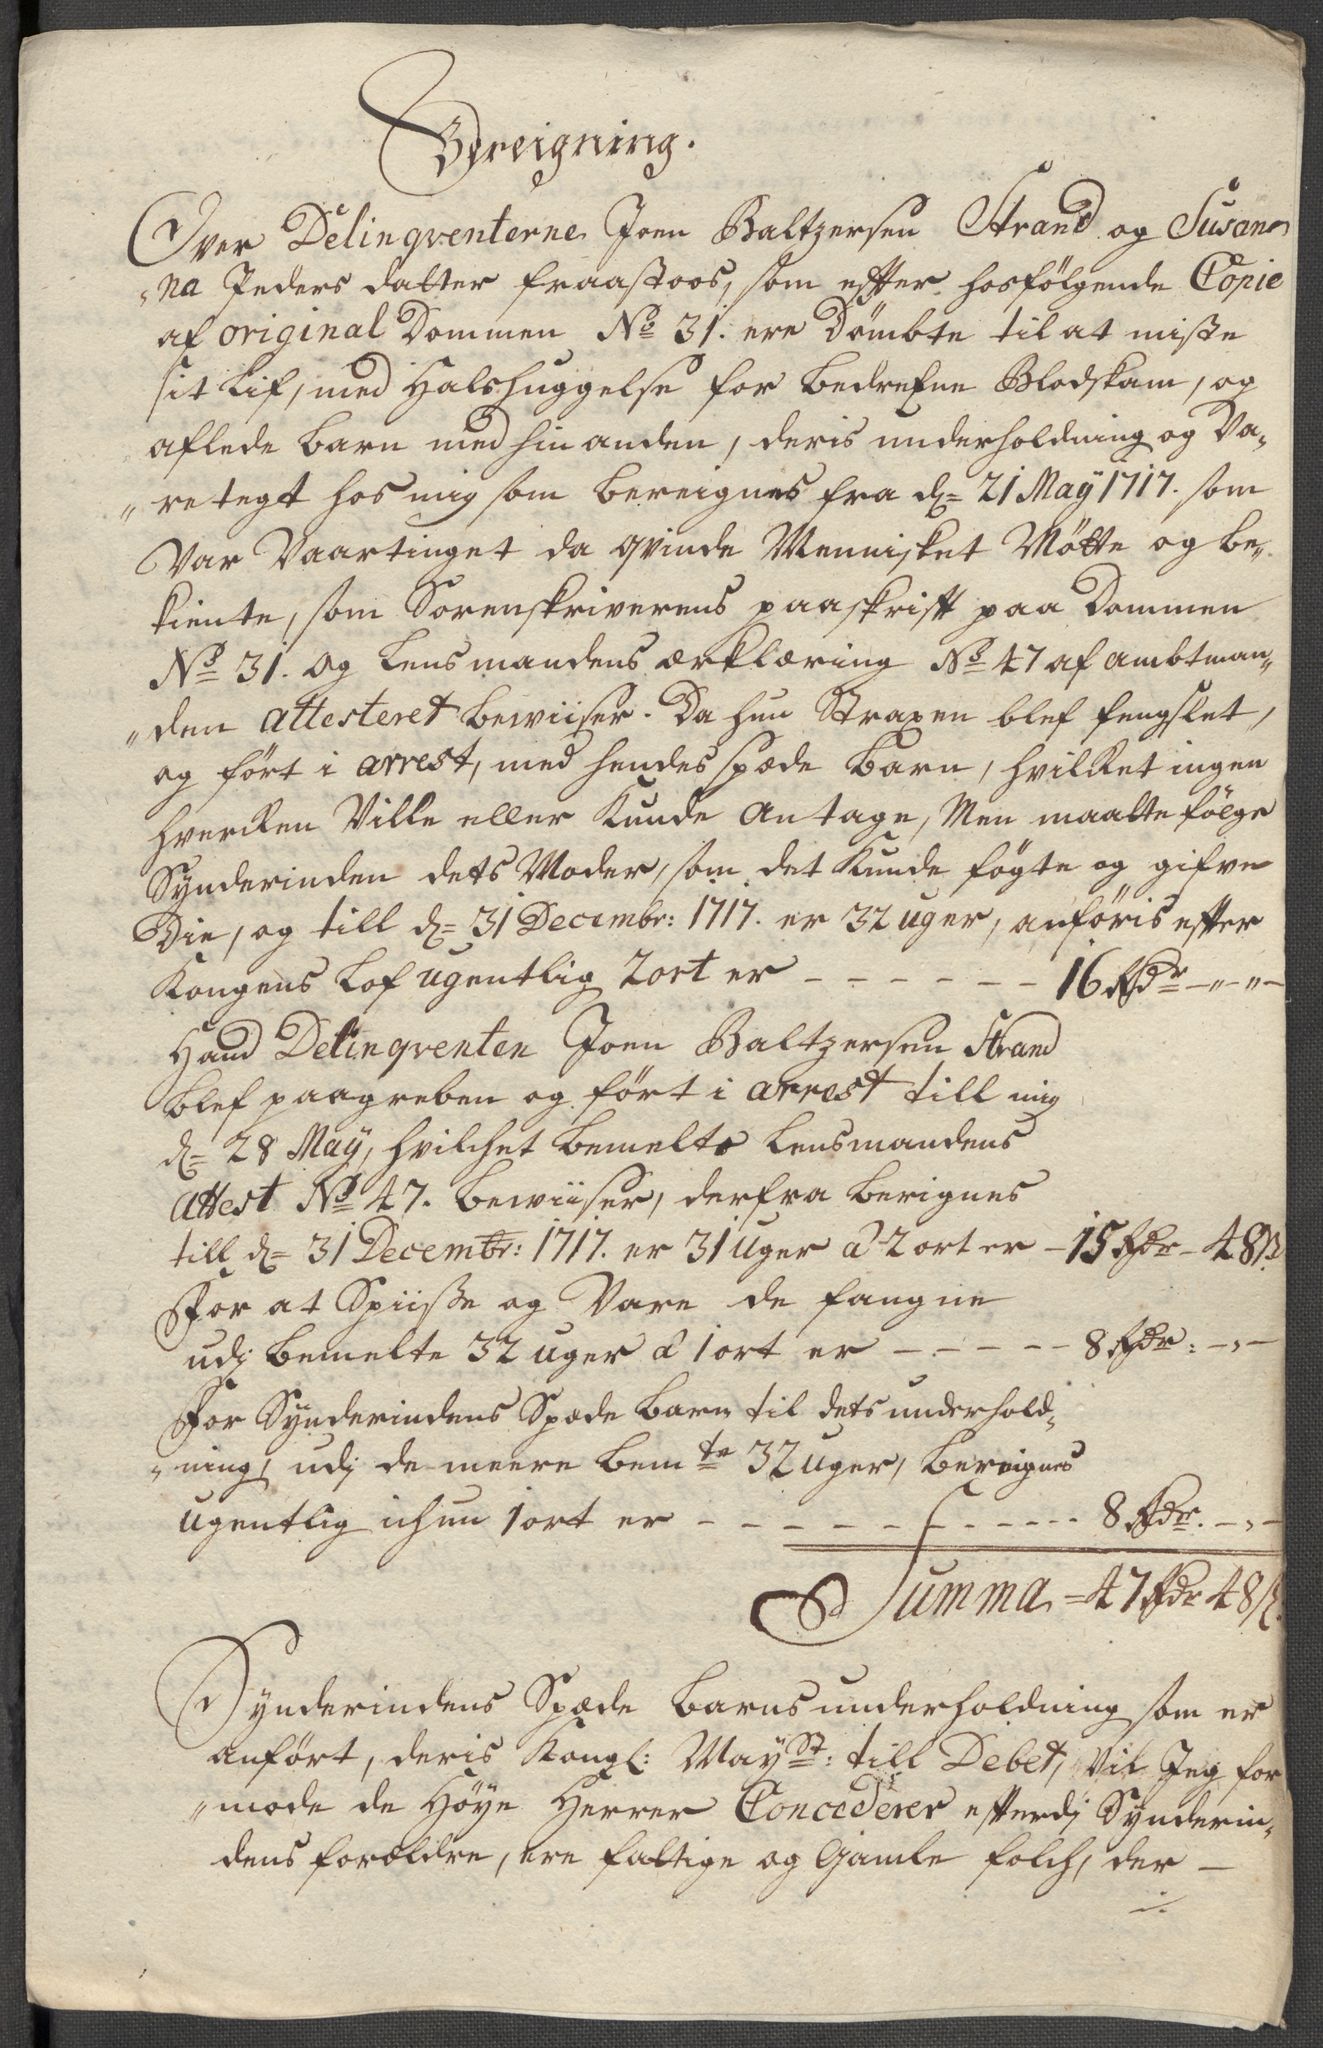 Bereigning.
Over Delinqventerne Joen Baltzersen Strand og Susan-
"na Peders datter fraastoos, som efter hosfölgende Copie
af original Dommen No 31. ere Dömbte til at miste
sit Lif, med Halshuggelse for bedrefne Blodskam, og
aflede barn med hin anden, deris underholdning og Va-
"retegt hos mig som bereignes fra d= 21 Maÿ 1717. som
Var Vaartinget da qvinde Mennisket Mötte og be-
kiente, som Sorenskriverens paaskrift paa Dommen
No 31. og Lensmandens ærklæring No 47 af ambtman-
"den attesteret bewiiser. Da hun Straxen blef fengslet,
og fört i arrest, med hendes spæde barn, hvilket ingen
hvercken Ville eller Kunde antage, Men maatte fölge
Synderinden dets Moder, som det Kunde fögte og gifve
Die, og till d= 31 Decembr: 1717. er 32 uger, anföris efter
Kongens Lof ugentlig 2 ort er - - - - - - 16 Rdr -"-"-
Hand Delinqventen Joen Baltzersen Strand
blef paagreben og fört i arrest till mig
d= 28 Maÿ, hvilchet bemelte Lensmandens
attest No 47. bewiiser, derfra berignes
till d= 31 Decembr: 1717. er 31 Uger à 2 ort er - 15 Rdr - 48 ß
For at Spiisse og Vare de fangne
udj bemelte 32 uger à 1 ort er - - - - - 8 Rdr: -,-
For Synderindens Spæde barn til dets underhold-
"ning, udj de meere bemte 32 uger, bereignes
ugentlig ichun 1 ort er - - - - - - - - - 8 Rdr. -,-
Summa = 47 Rdr 48 ß.
Synderindens Spæde barns underholdning som er
anfört, deris Kongl: Mayst: till Debet, Vil Jeg for
"mode de Höye Herrer Concederer efterdj Synderin-
dens forældre, ere fattige og Gamle folch, der -